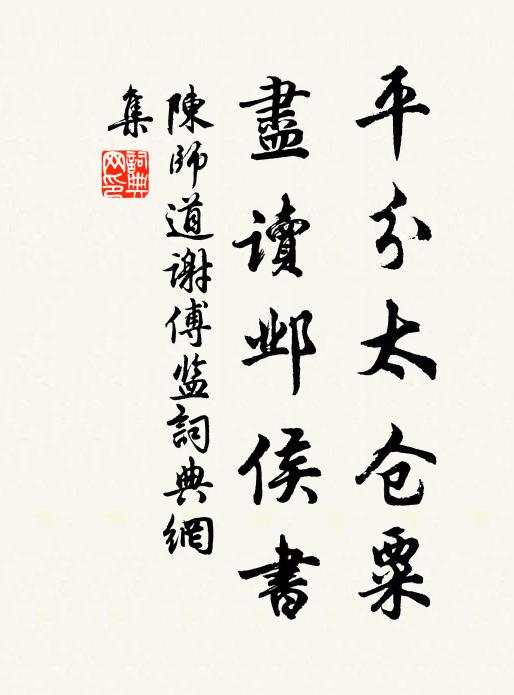 平分太仓粟
盡讀邺侯書
陳師道谢傅监詞典網
集
詞典
网印